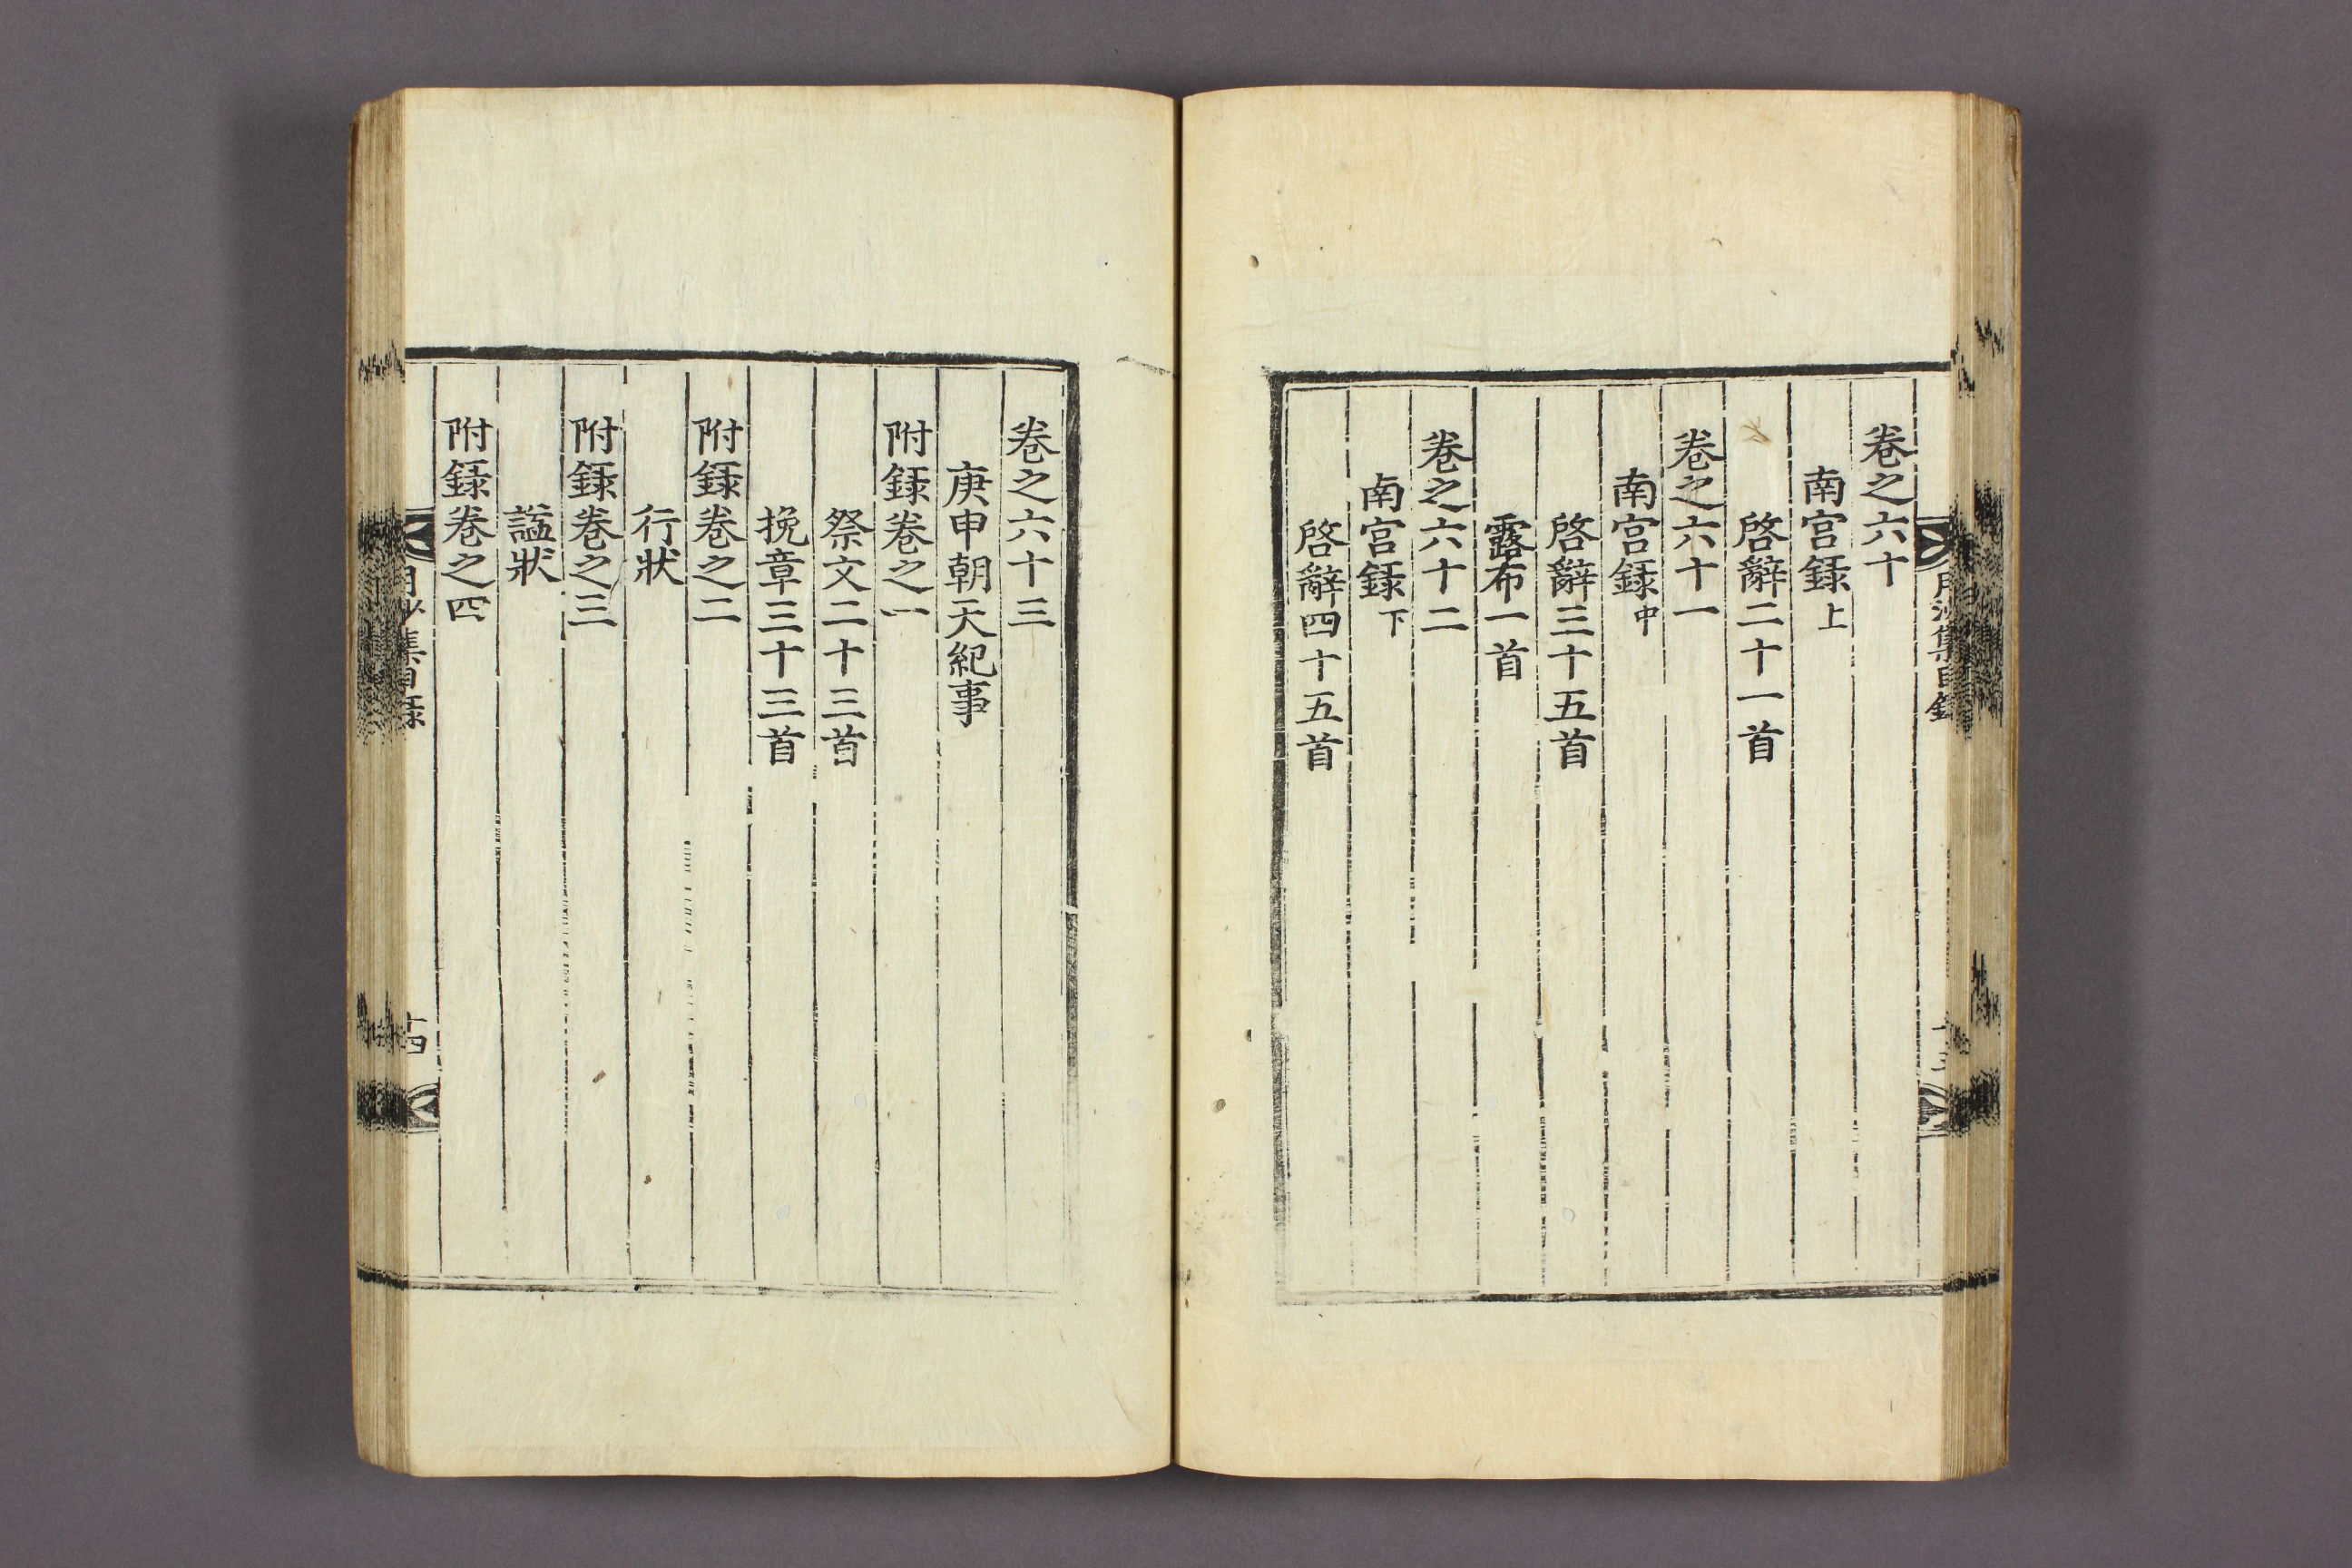 卷之六十
南宮錄上
啓辭二十一首
卷之六十一
南宮錄中
啓辭三十五首
露布一首
卷之六十二
南宮錄下
啓辭四十五首
卷之六十三
庚申朝天紀事
附錄卷之一
祭文二十三首
挽章三十三首
附錄卷之二
行狀
附錄卷之三
諡狀
附錄卷之四
月沙集目錄
十四